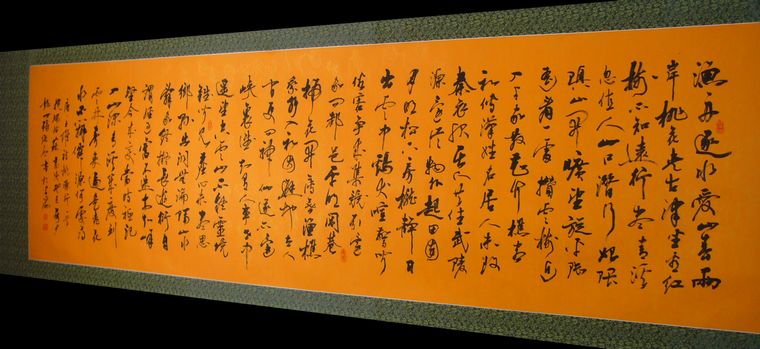 漁舟逐水愛山春兩
岸桃花夾古津坐看紅
樹不知遠行盡青溪
忽值人山口潛行始隈
隩山開曠望旋平陸
遙看一處攢雲樹近
入千家散花竹樵客
初傳漢姓名居人未改
秦衣服居人共住武陵
源還從物外起田園
月明松下房櫳靜日
出雲中雞犬喧驚聞
俗客爭來集競引還
家問都邑平明閭巷
掃花開薄暮漁樵
乘水入初因避地去人
間及至成仙遂不還
峽裏誰知有人事世中
遙望空雲山不疑靈境
難聞見塵心未盡思
鄉縣出洞無論隔山水
辭家終擬長遊衍自
謂經過舊不迷安知峰
壑今來變當時只記
入山深青溪幾度到
雲林春來遍是桃花
水不辨仙源何處尋